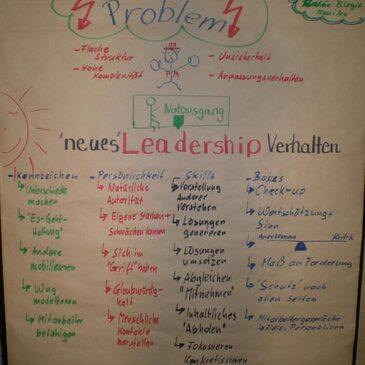 Problem
Birgit
- Flache
Struktur
- Hohe
Komplexität
- Unsicherheit
- Anpassungsverhalten
Notausgang
"neues" Leadership Verhalten
- Kennzeichen
Unterschiede
machen
"Es-Geht-
Haltung"
Andere
mobilisieren
Weg
modellieren
Mitarbeiter
befähigen
- Persönlichkeit
Natürliche
Autorität
Eigene Stärken +
Schwächen kennen
Sich im
"Griff" haben
Glaubwürdig-
keit
Menschliche
Kontakte
herstellen
- Skills
Vorstellung
Anderer
verstehen
Lösungen
generieren
Lösungen
umsetzen
Abgleichen
"Mitnehmen"
Inhaltliches
"Abholen"
Fokussieren
Konkretisieren
- Basics
Check-up
Wertschätzung +
Sinn
Anerkennung Kritik
Maß an Forderung
"Schutz" nach
allen Seiten
Mitarbeitergespräche
Ziele, Perspektiven